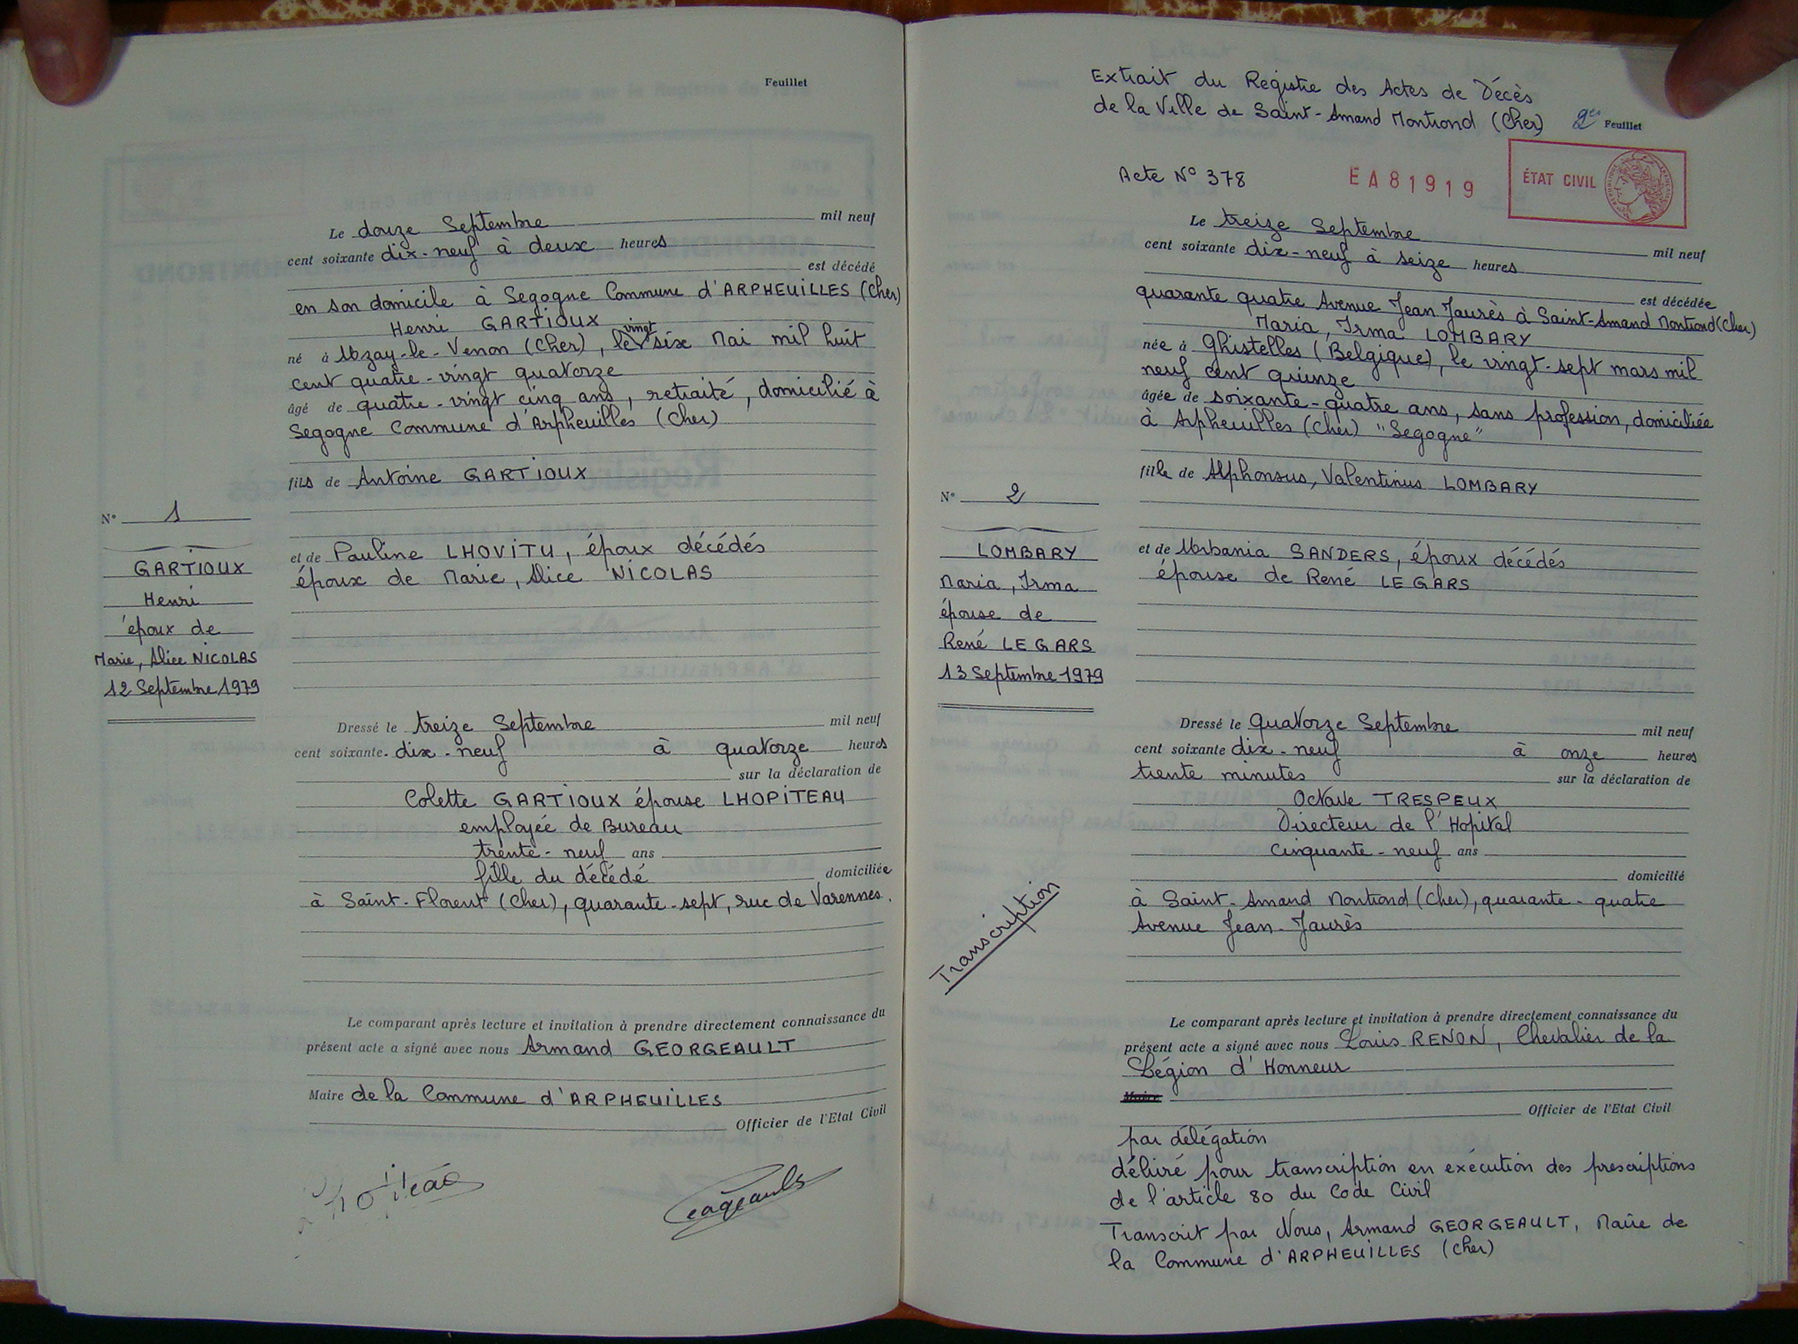 Feuillet
Le douze Septembre mil neuf
cent soixante dix-neuf à deux heures
est décédé
en son domicile à Segogne Commune d'ARPHEUILLES (Cher)
Henri GARTIOUX
né à Uzay-le-Venon (Cher), le vingt six Mai mil huit
cent quatre-vingt quatorze
âgé de quatre-vingt cinq ans, retraité, domicilié à
Segogne Commune d'Arpheuilles (Cher)
fils de Antoine GARTIOUX
N° 1
GARTIOUX
Henri
époux de
Marie, Alice NICOLAS
12 Septembre 1979
et de Pauline LHOVITU, époux décédés
époux de Marie, Alice NICOLAS
Dressé le treize Septembre mil neuf
cent soixante-dix-neuf à quatorze heures
sur la déclaration de
Colette GARTIOUX épouse LHOPITEAU
employée de Bureau
trente-neuf ans
fille du décédé domiciliée
à Saint-Florent (Cher), quarante-sept, rue de Varennes.
Le comparant après lecture et invitation à prendre directement connaissance du
présent acte a signé avec nous Armand GEORGEAULT
Maire de la Commune d'ARPHEUILLES
Officier de l'Etat Civil
Extrait du Registre des Actes de Décès
de la Ville de Saint-Amand Montrond (Cher)
Feuillet
Acte N° 378
EA81919
ÉTAT CIVIL
Le treize Septembre mil neuf
cent soixante dix-neuf à seize heures
est décédée
quarante quatre Avenue Jean Jaurès à Saint-Amand Montrond (Cher)
Maria, Irma LOMBARY
née à Ghistelles (Belgique), le vingt-sept mars mil
neuf cent quinze
âgée de soixante-quatre ans, sans profession, domiciliée
à Arpheuilles (Cher) "Segogne"
fille de Alphonsus, Valentinus LOMBARY
N° 2
LOMBARY
Maria, Irma
épouse de
René LE GARS
13 Septembre 1979
et de Urbania SANDERS, époux décédés
épouse de René LE GARS
Dressé le quatorze Septembre mil neuf
cent soixante dix-neuf à onze heures
trente minutes sur la déclaration de
Octave TRESPEUX
Directeur de l'Hopital
cinquante-neuf ans
domicilié
à Saint-Amand Montrond (Cher), quarante-quatre
Avenue Jean-Jaurès
Transcription
Le comparant après lecture et invitation à prendre directement connaissance du
présent acte a signé avec nous Louis RENON, Chevalier de la
Légion d'Honneur
Officier de l'Etat Civil
par délégation
délivré pour transcription en exécution des prescriptions
de l'article 80 du Code Civil
Transcrit par Nous, Armand GEORGEAULT, Maire de
la Commune d'ARPHEUILLES (Cher)